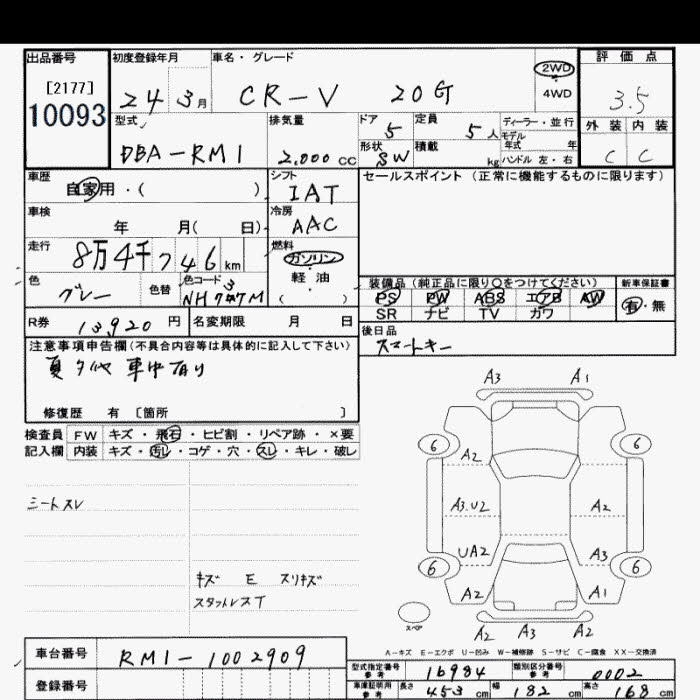 出品番号 初度登録年月 車名・グレード 2WD 評価点
[2177] 24 3月 CR-V 20G 4WD 3.5
10093 型式 排気量 ドア 定員 ディーラー・並行 外装 内装
DBA-RM1 2.000 CC 5 5人 モデル年式 年 C C
形状 SW 積載 kg ハンドル 左・右
車歴 自家用・( ) シフト IAT セールスポイント(正常に機能するものに限ります)
車検 年 月( 日) 冷房 AAC
走行 8万4千746km 燃料 ガソリン
軽油
( )
色 グレー 色替 色コード NH
装備品(純正品に限り○をつけてください) 新車保証書
PS PW ABS エアB AW 有・無
SR ナビ TV カワ
R券 13920円 名変期限 月 日 後日品
スマートキー
注意事項申告欄(不具合内容等は具体的に記入して下さい)
夏タイヤ 車中有り
修復歴 有 〔箇所 〕
検査員 FW キズ・飛石・ヒビ割・リペア跡・×要
記入欄 内装 キズ・汚レ・コゲ・穴・スレ・キレ・破レ
シートスレ
キズ E スリキズ
スタットレスT
A3 A1
6 6
A2
A3.U2 A2
UA2 A3
6 6
A2 A1
スペア A2 A3 A2
A-キズ E-エクボ U-凹み W-補修跡 S-サビ C-腐食 XX-交換済
車台番号 RM1-1002909
登録番号
型式指定番号 参考 16984 類別区分番号 参考 0002
車庫証明用 参考 長さ 453cm 幅 182cm 高さ 168cm